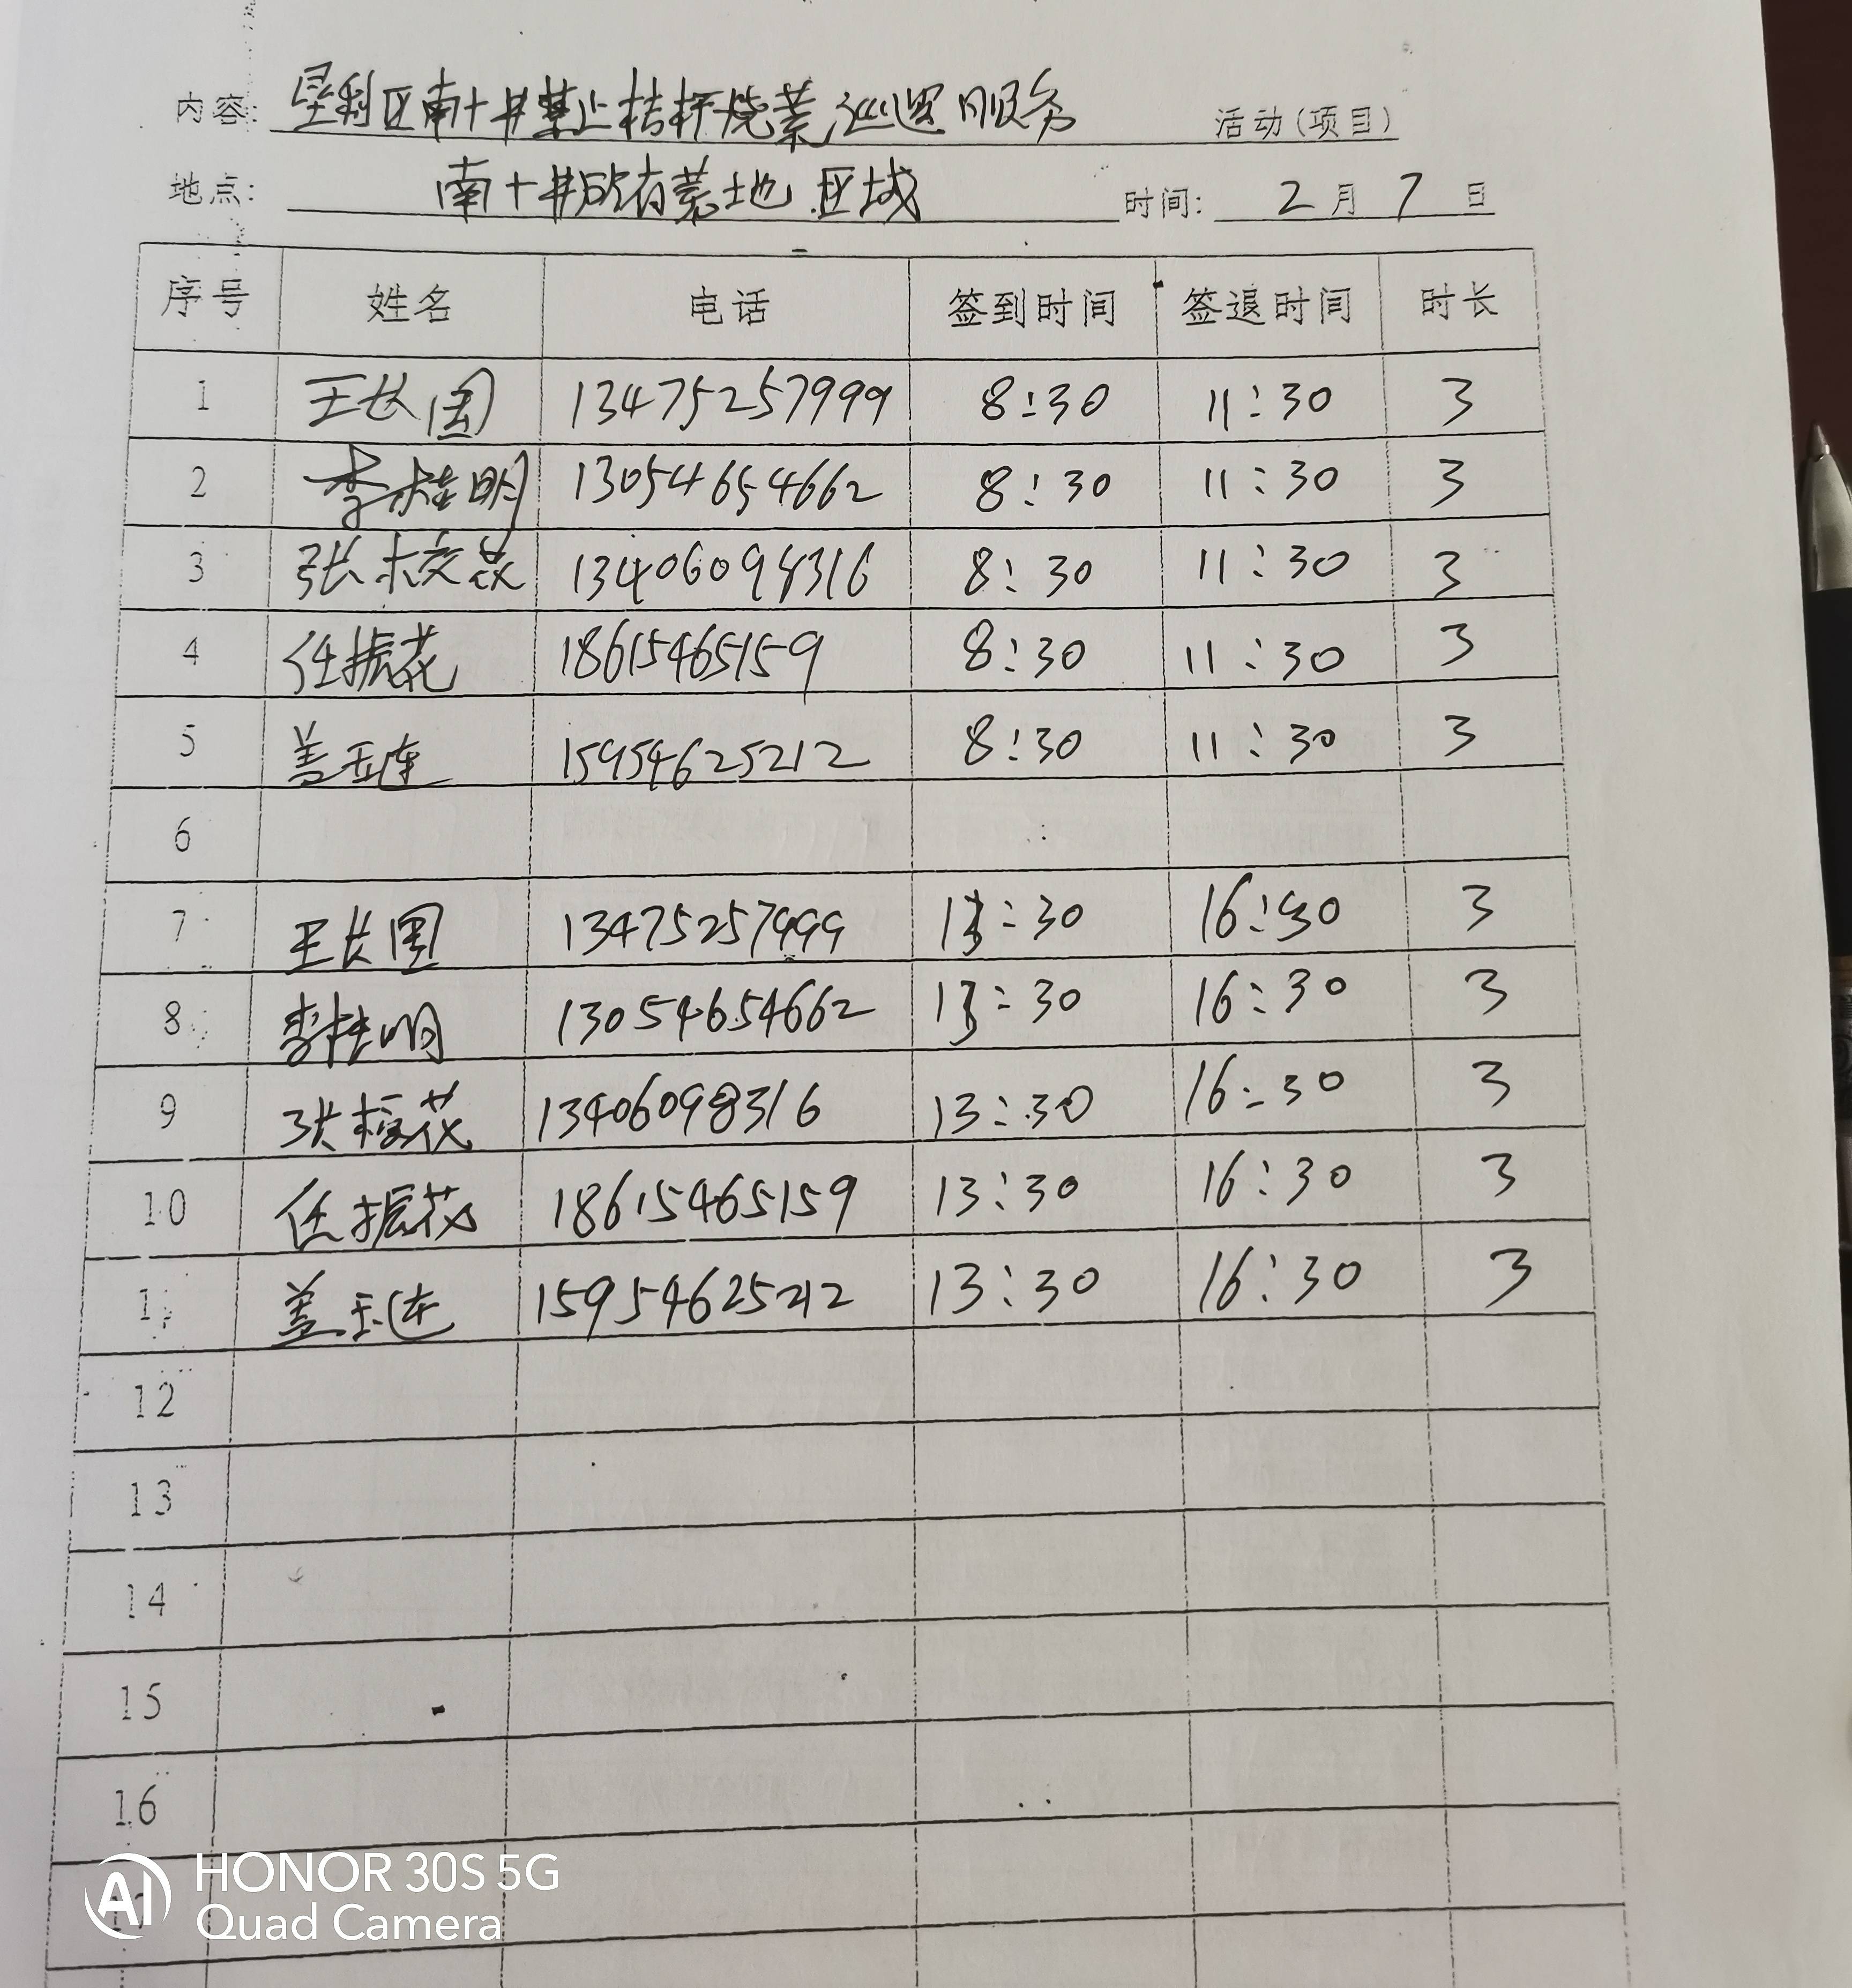 内容: 垦利区南十井禁止桔杆烧荒巡逻服务 活动(项目)
地点: 南十井所有荒地区域 时间: 2月7日
序号 姓名 电话 签到时间 签退时间 时长
1 王长国 13475257999 8:30 11:30 3
2 李桂明 13054654662 8:30 11:30 3
3 张 13406098316 8:30 11:30 3
4 任振花 18615465159 8:30 11:30 3
5 盖玉连 15954625212 8:30 11:30 3
6
7 王长国 13475257999 13:30 16:30 3
8 李桂明 13054654662 13:30 16:30 3
9 张 13406098316 13:30 16:30 3
10 任振花 18615465159 13:30 16:30 3
11 盖玉连 15954625212 13:30 16:30 3
12
13
14
15
16
17
AI HONOR 30S 5G
Quad Camera